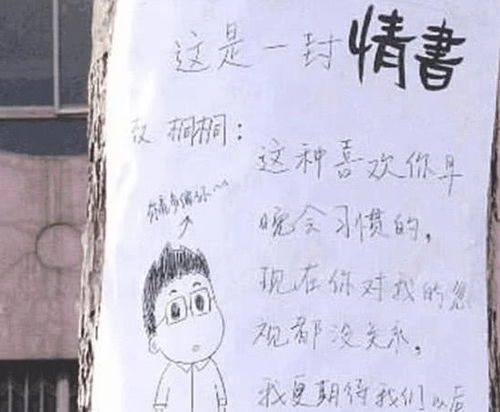 这是一封情書
致 桐桐：
这种喜欢你早
晚会习惯的，
现在你对我的忽
视都没关系，
我更期待我们以后